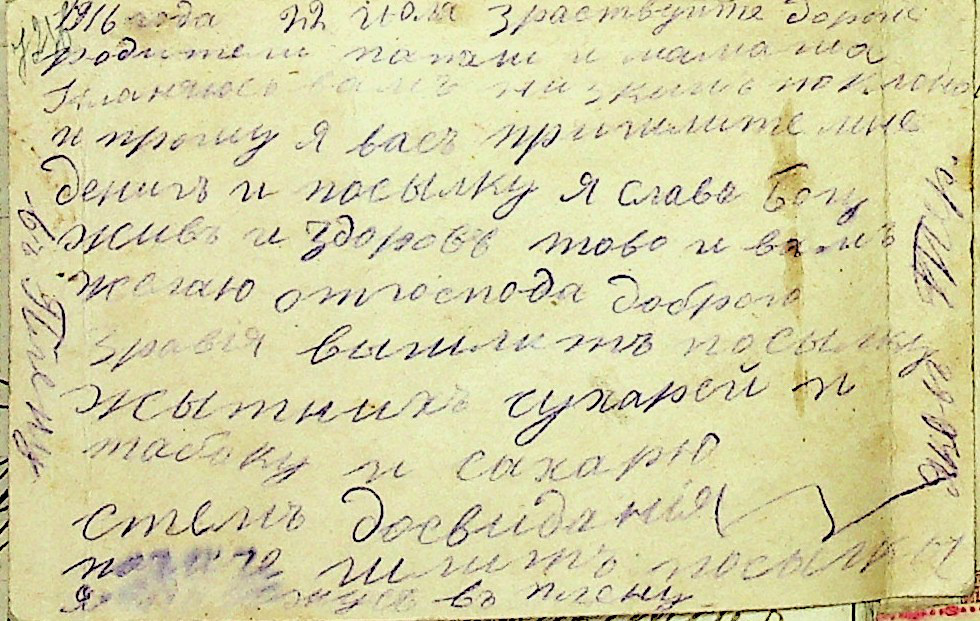 1916 года 22 июля Зраствуйте дороги
родители папаш и мамаша
Кланяюсь вамъ низкимъ поклоном
и прошу я васъ пришлите мне
денигъ и посылку я слава Богу
живъ и здоровъ тово и вамъ
желаю отгоспода доброго
зравія вышлитъ посылку
жытникъ сухарей и
табоку и сахарю
стемъ досвиданія
шлитъ посылку
я въ плену
бъ Плену